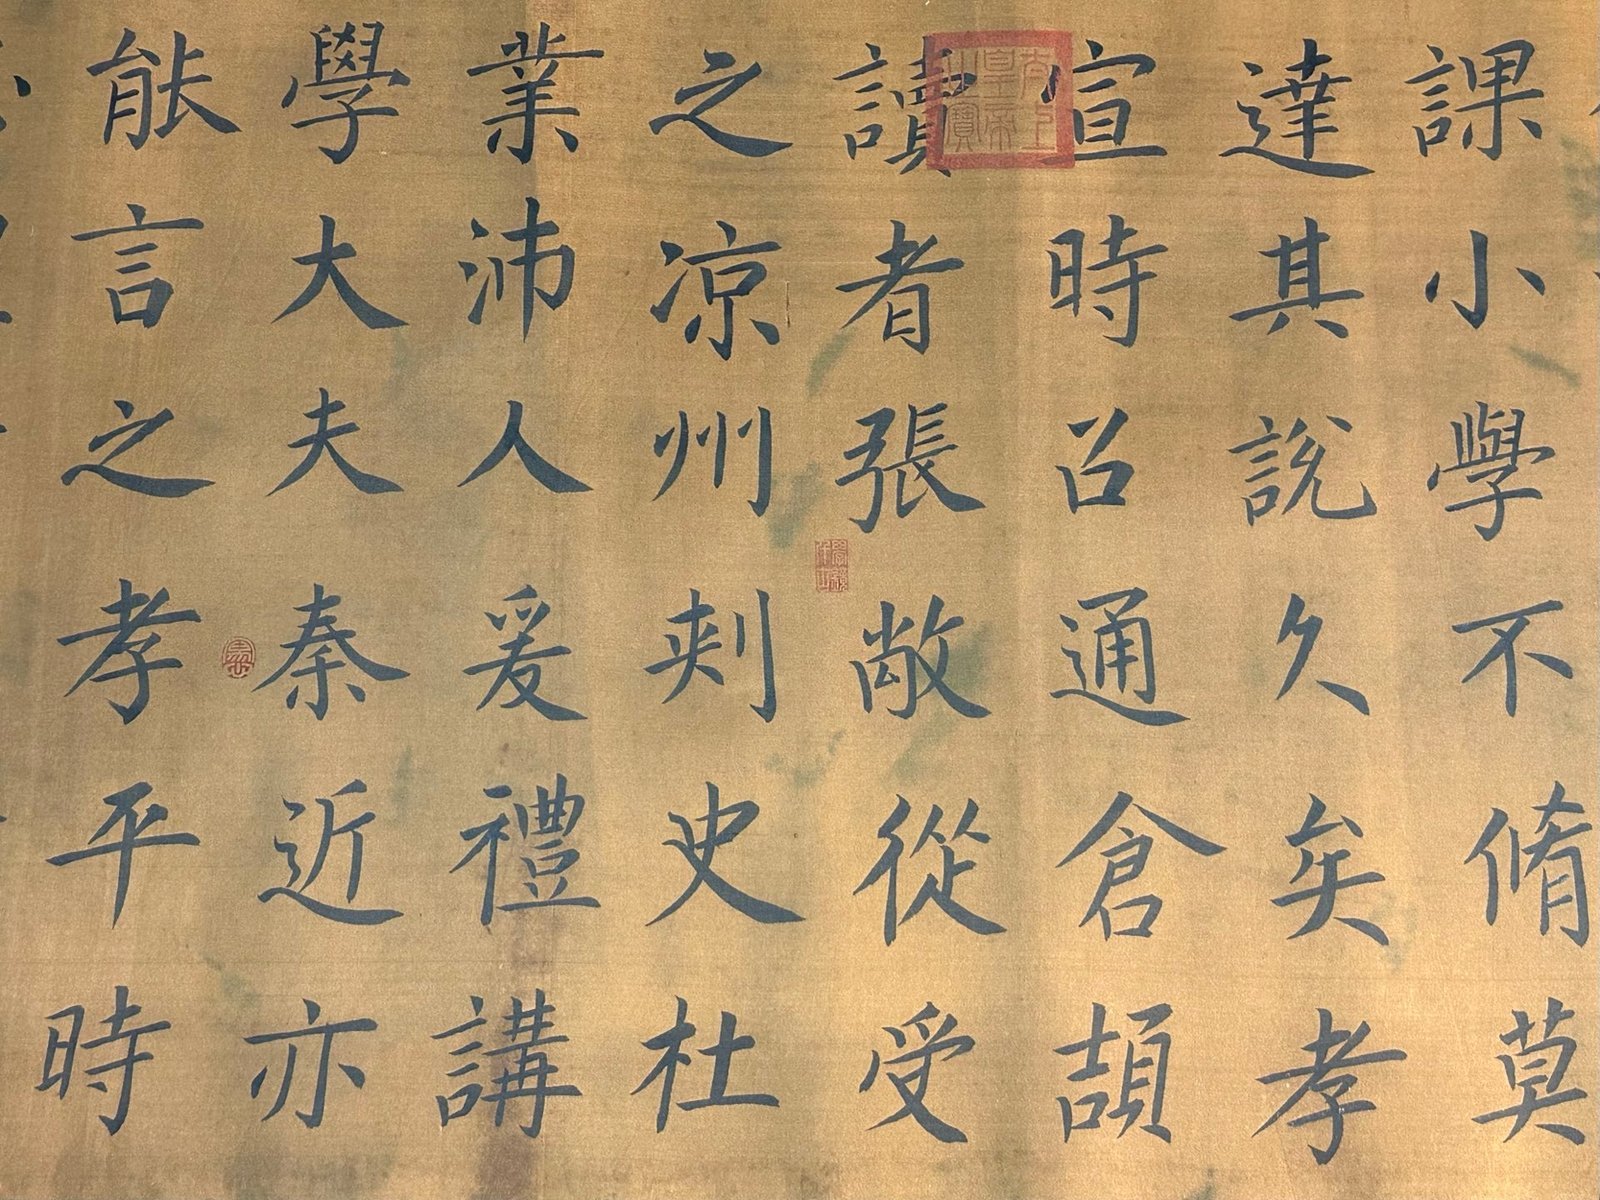 課小學不脩莫
達其說久矣孝
宣時召通倉頡
讀者張敞從受
之凉州刾史杜
業沛人爰禮講
學大夫秦近亦
能言之孝平時